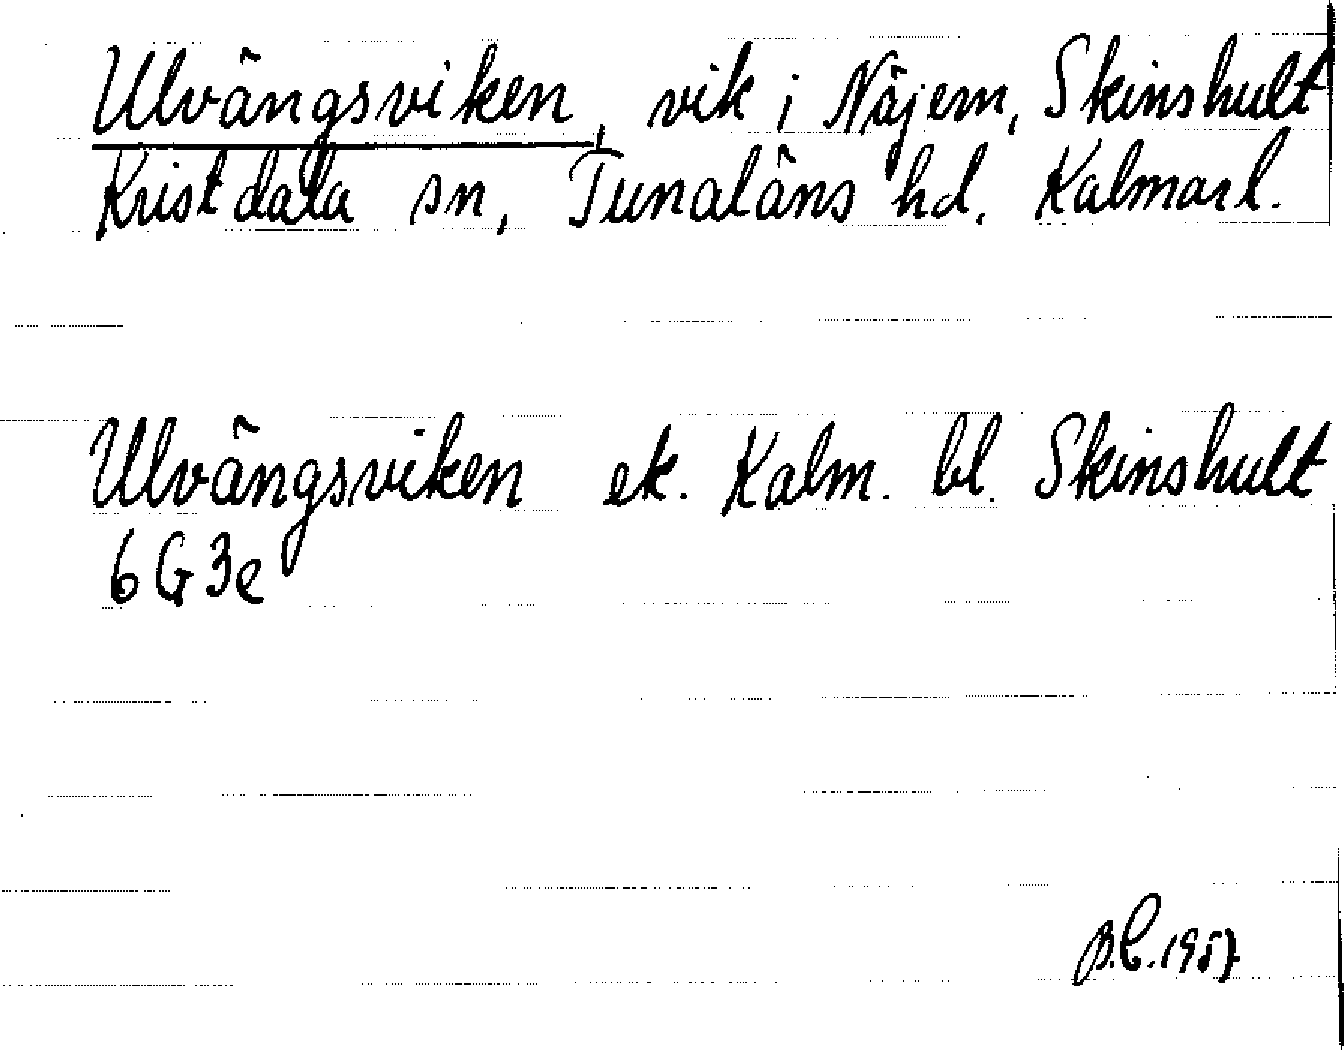 Ulvängsviken, vik i Näjern, Skinshult
Kristdala sn, Tunaläns hd. Kalmarl.
Ulvängsviken ek. Kalm. bl. Skinshult
6G3e
B.C. 1957